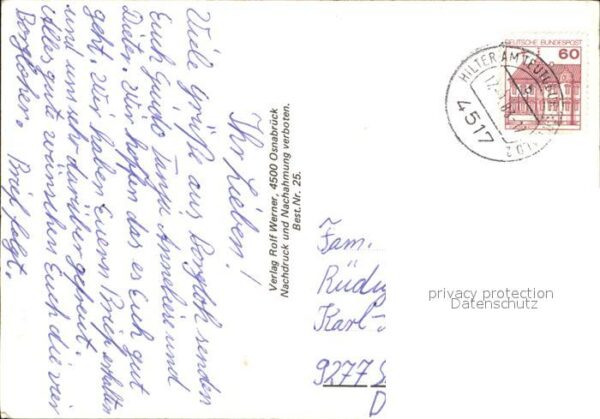 Ihr Lieben!
Viele Grüße aus Borgloh senden
Euch Guido Tanja Anneliese und
Dieter. Wir hoffen das es Euch gut
geht. Wir haben Euern Brief erhalten
und uns sehr darüber gefreut.
Alles gute wünschen Euch die vier
Borgloher. Brief folgt.
Verlag Rolf Werner, 4500 Osnabrück
Nachdruck und Nachahmung verboten.
Best.Nr. 25.
DEUTSCHE BUNDESPOST
60
HILTER AM TEUTO
4517
Fam.
Rüdig
Karl-
9277
D
privacy protection
Datenschutz